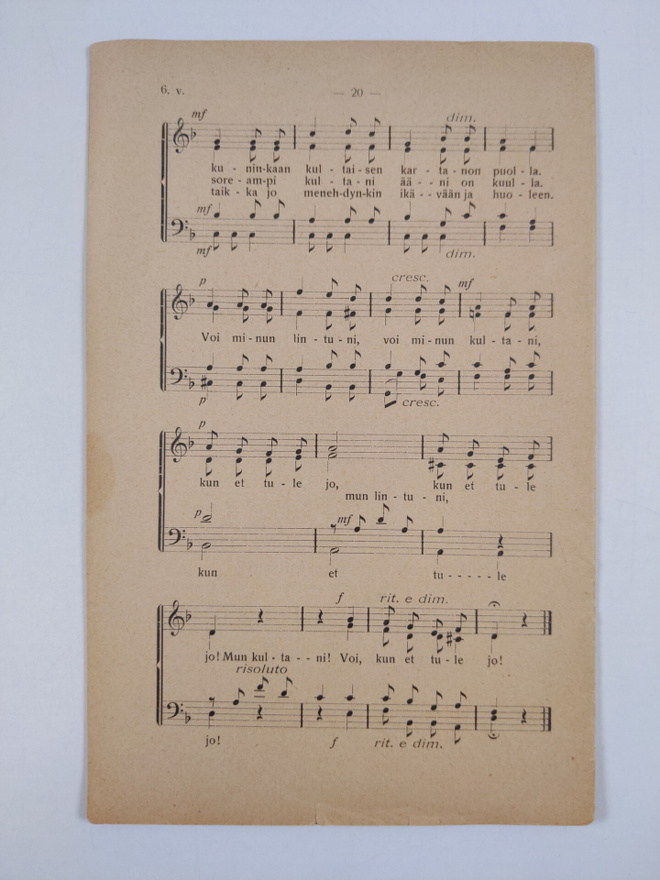 6. v.
— 20 —
mf dim.
ku - nin-kaan kul - tai - sen kar - ta - non puol - la.
sore - am-pi kul - ta - ni ää - - ni on kuul - la.
taik - ka jo meneh-dyn-kin ikä - - vään ja huo - leen.
mf
mf dim.
p cresc. mf
Voi mi - nun lin - tu - ni, voi mi - nun kul - ta - ni,
p cresc.
p
kun et tu - le jo, kun et tu - le
mun lin - tu - ni,
p mf
kun et tu - - - - - le
f rit. e dim.
jo! Mun kul - ta - - ni! Voi, kun et tu - le jo!
risoluto
jo! f rit. e dim.